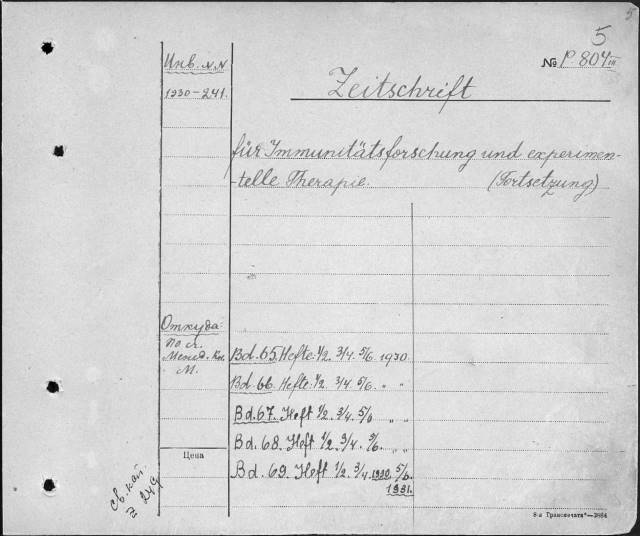 5
5
Инв. N.N
№ P. 804 III
1930-241.
Zeitschrift
für Immunitätsforschung und experimen-
-telle Therapie. (Fortsetzung)
Откуда:
По сч.
М.
Bd. 65. Hefte 1/2. 3/4. 5/6. 1930.
Bd. 66. Hefte 1/2. 3/4. 5/6. " "
Bd. 67. Heft 1/2. 3/4. 5/6 " "
Bd. 68. Heft 1/2. 3/4. 5/6. " "
Цена
Bd. 69. Heft 1/2. 3/4. 1930. 5/6.
1931.
249
8-я „Транспечать“—3864